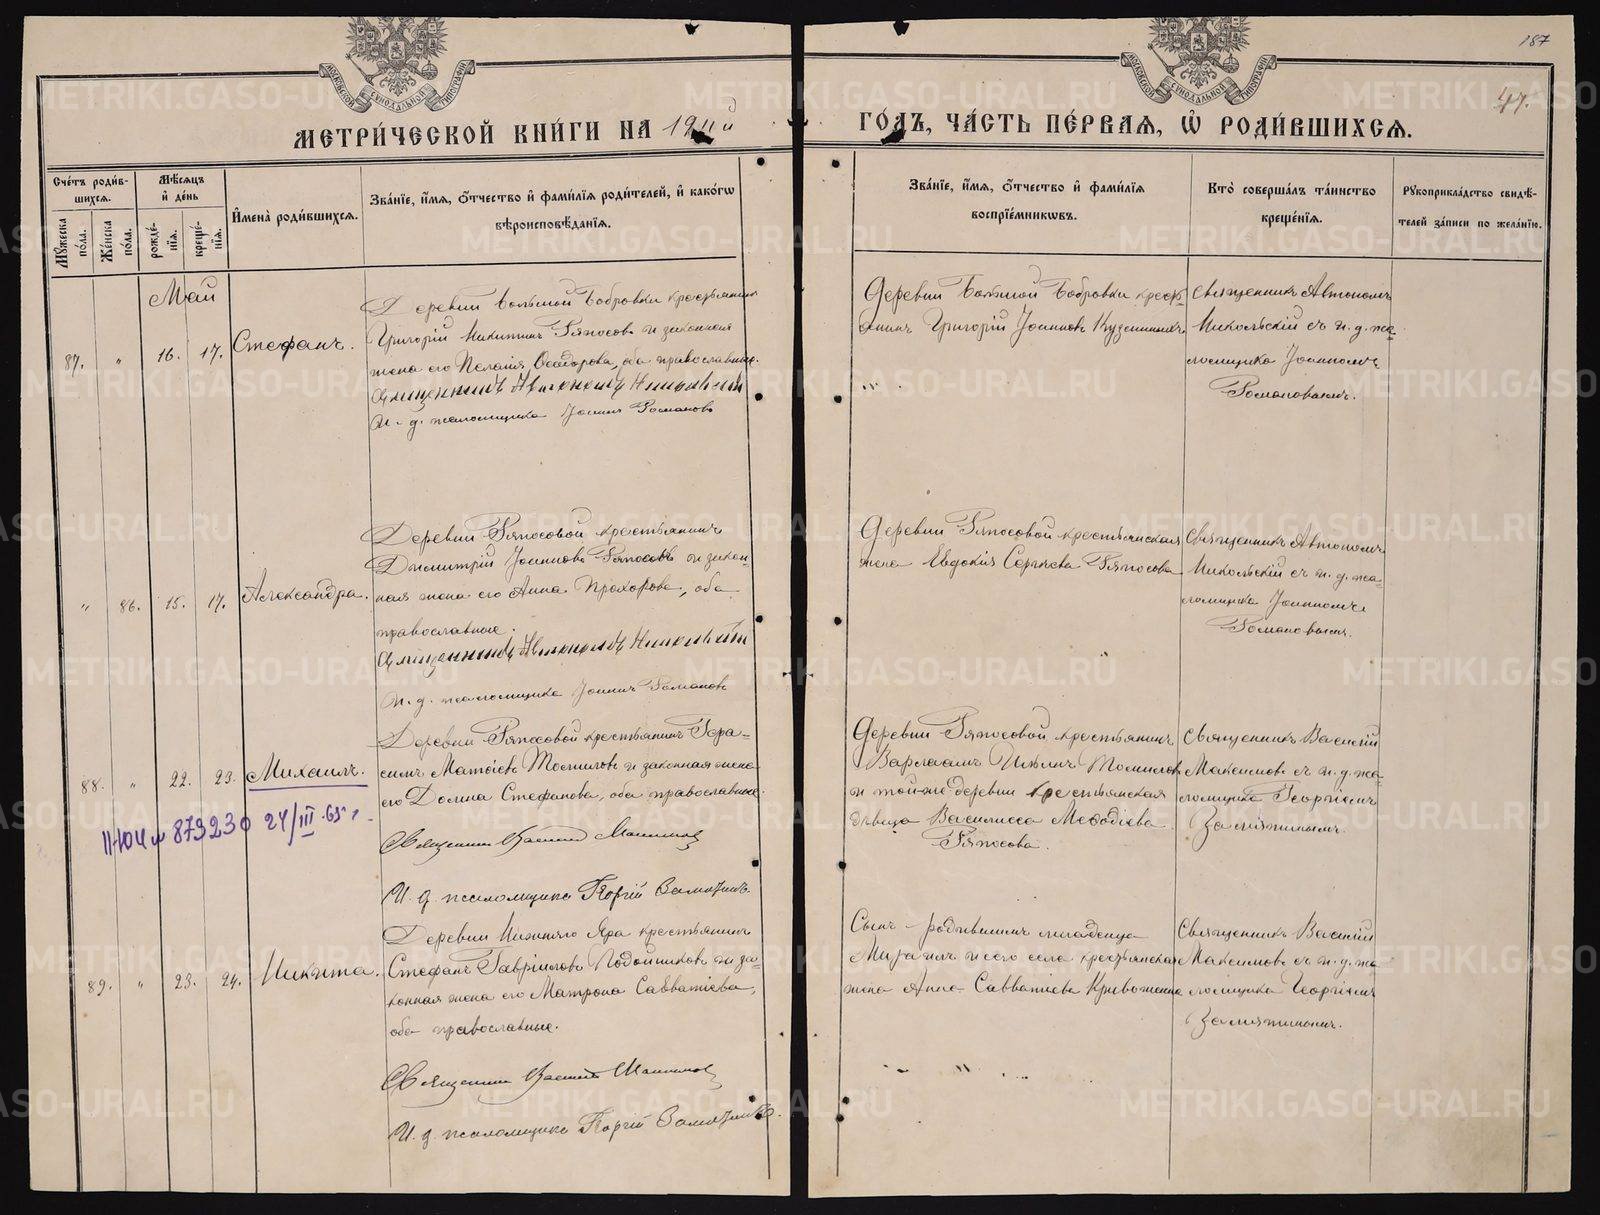 187
47.
МОСКОВСКОЙ СѴНОДАЛЬНОЙ ТИПОГРАФІИ
МОСКОВСКОЙ СѴНОДАЛЬНОЙ ТИПОГРАФІИ
МЕТРИ́ЧЕСКОЙ КНИ́ГИ НА 1911й
ГО́ДЪ, ЧА́СТЬ ПЕ́РВАѦ, Ѡ҆ РОДИ́ВШИХСѦ.
Сче́тъ роди́в-
шихсѧ.
Мꙋ́жеска по́ла.
Же́нска по́ла.
Мѣ́сѧцъ и҆ де́нь
рожде́-
нїѧ.
креще́-
нїѧ.
И҆мена̀ роди́вшихсѧ.
Зва́нїе, и҆́мѧ, ѻ҆́тчество и҆ фами́лїѧ роди́телей, и҆ како́гѡ
вѣроисповѣ́данїѧ.
Зва́нїе, и҆́мѧ, ѻ҆́тчество и҆ фами́лїѧ
воспрїе́мникѡвъ.
Кто̀ соверша́лъ та́инство
креще́нїѧ.
Рꙋкоприкла́дство свидѣ́-
телей за́писи по жела́нїю.
Май
87. " 16. 17. Стефанъ.
Деревни Большой Бобровки крестьянинъ
Григорій Никитинъ Ряпосовъ и законная
жена его Пелагія Ѳеодорова, оба православные.
Священникъ Автономъ Никольскій
И. д. псаломщика Іоаннъ Романовъ
Деревни Большой Бобровки кресть-
янинъ Григорій Іоанновъ Кузеванныхъ
Священникъ Автономъ
Никольскій съ и. д. пса-
ломщика Іоанномъ
Романовымъ.
" 86. 15. 17. Александра.
Деревни Ряпосовой крестьянинъ
Димитрій Іоанновъ Ряпосовъ и закон-
ная жена его Анна Прохорова, оба
православные.
Священникъ Автономъ Никольскій
И. д. псаломщика Іоаннъ Романовъ
Деревни Ряпосовой крестьянская
жена Евдокія Сергѣева Ряпосова
Священникъ Автономъ
Никольскій съ и. д. пса-
ломщика Іоанномъ
Романовымъ.
88. " 22. 23. Михаилъ.
II-ЮЧ № 873230 24/III 65 г.
Деревни Ряпосовой крестьянинъ Гера-
симъ Матѳіевъ Томиловъ и законная жена
его Домна Стефанова, оба православные.
Священникъ Василій Максимовъ
И. д. псаломщика Георгій Замятинъ
Деревни Ряпосовой крестьянинъ
Варлаамъ Ильинъ Томиловъ
и той-же деревни крестьянская
дѣвица Василисса Меѳодіева
Ряпосова.
Священникъ Василій
Максимовъ съ и. д. пса-
ломщика Георгіемъ
Замятинымъ.
89. " 23. 24. Никита.
Деревни Нижняго Яра крестьянинъ
Стефанъ Гавріиловъ Подойниковъ и за-
конная жена его Матрона Савватіева,
оба православные.
Священникъ Василій Максимовъ
И. д. псаломщика Георгій Замятинъ.
Сынъ родившимъ младенца
Михаилъ и сего села крестьянская
жена Анна Савватіева
Священникъ Василій
Максимовъ съ и. д. пса-
ломщика Георгіемъ
Замятинымъ.
METRIKI.GASO-URAL.RU